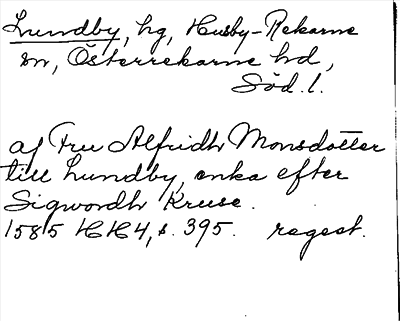 Lundby, hg, Husby-Rekarne
sn, Österrekarne hd,
Söd. l.
af Fru Alfridh Monsdotter
till Lundby, enka efter
Sigwordh Kruse.
1585 HH4, s. 395. regest.